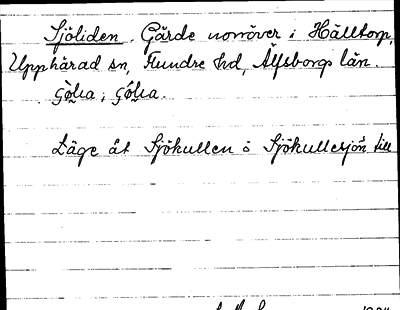 Sjöliden. Gärde norröver i Hälltorp,
Upphärad sn, Flundre hd, Älfsborgs län.
Läge åt Sjökullen o Sjökullesjön till